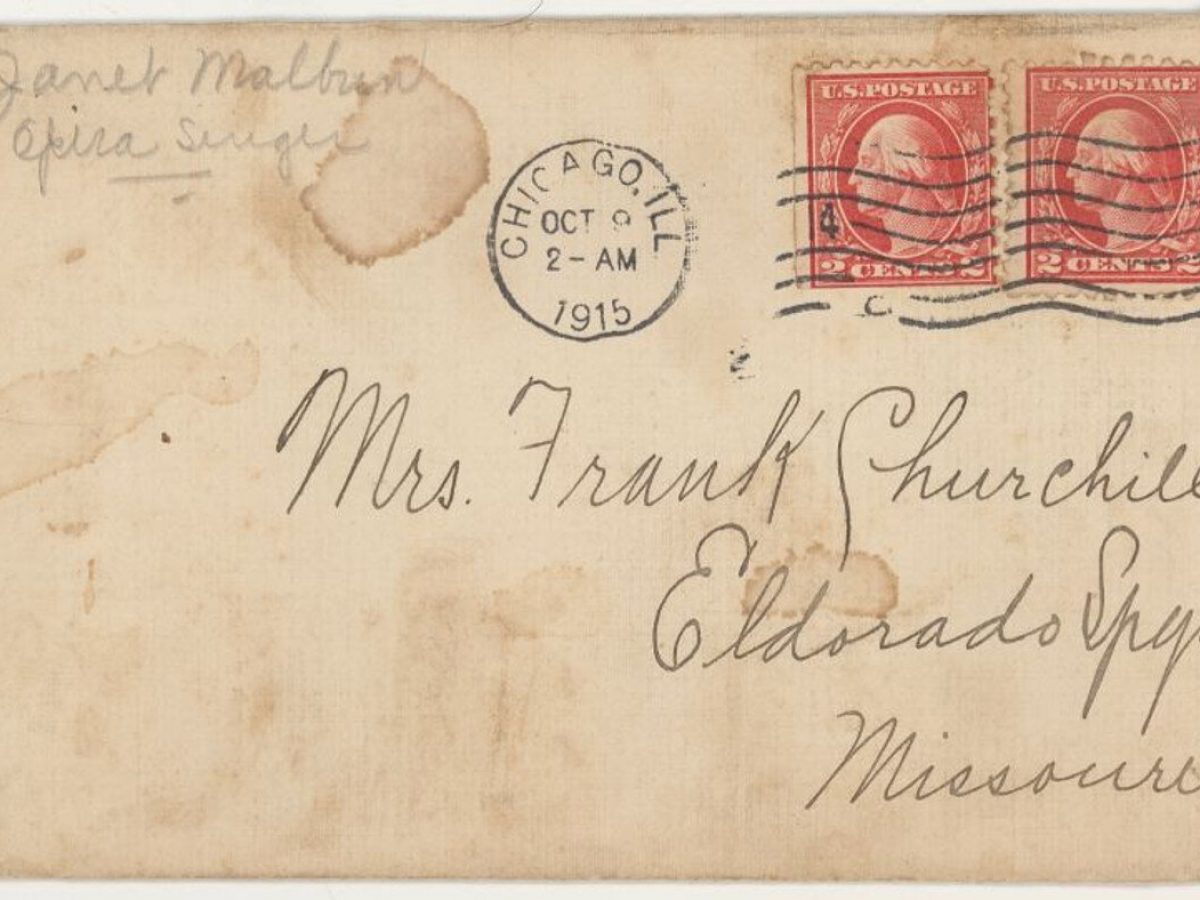 Janet Malbun
Opera Singer
CHICAGO, ILL
OCT 9
2-AM
1915
U.S. POSTAGE
2 CENTS 2
U.S. POSTAGE
2 CENTS 2
4
C
Mrs. Frank Churchill
Eldorado Spg
Missouri